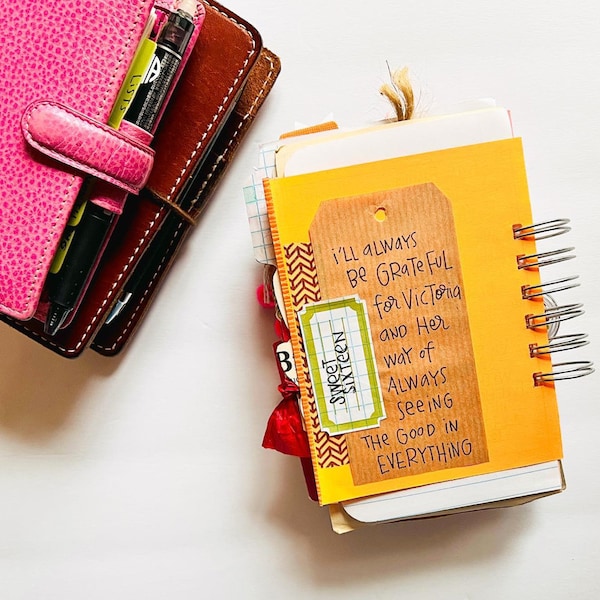 LISTS
i'll always
be grateful
for Victoria
and her
way of
always
seeing
the good in
everything
SWEET
SIXTEEN
B